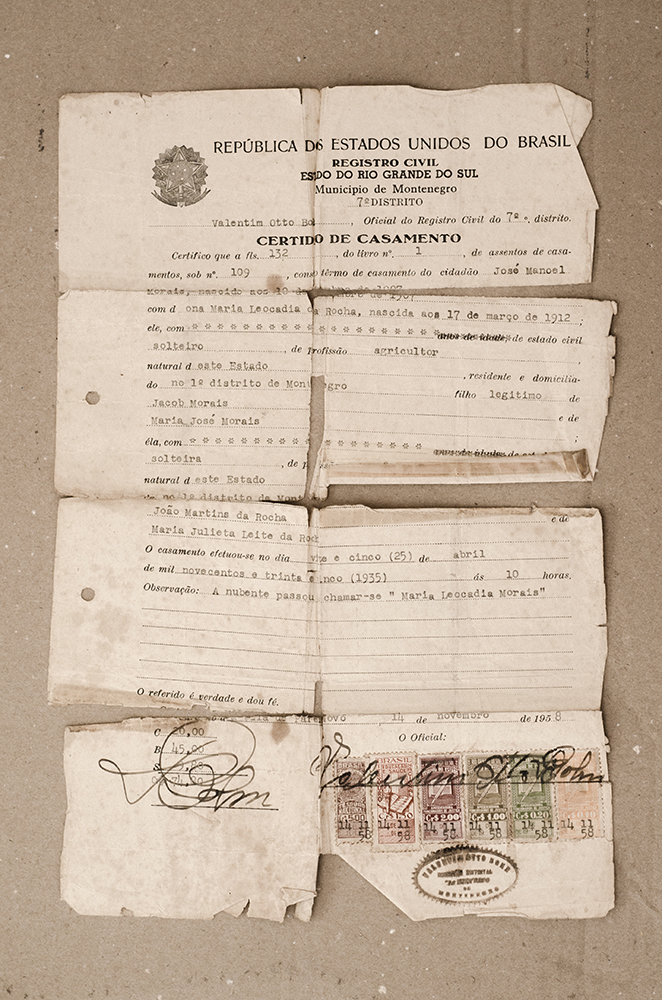 REPÚBLICA D6 ESTADOS UNIDOS DO BRASIL
REGISTRO CIVIL
ESDO DO RIO GRANDE DO SUL
Municipio de Montenegro
7º DISTRITO
Valentim Otto Bo , Oficial do Registro Civil do 7º º. distrito.
CERTIDO DE CASAMENTO
Certifico que a fls. 132 , do livro nº. 1 , de assentos de casa-
mentos, sob nº. 109 , cons o têrmo de casamento do cidadão José Manoel
Morais, nascido aos 10 de de 1907
com d ona Maria Leocadia da Rocha, nascida aos 17 de março de 1912 ;
ele, com * * * * * * * * * * * * * * * * * anos de idade, de estado civil
solteiro , de profissão agricultor
natural d este Estado , residente e domicilia-
do no 1º distrito de Montenegro filho legitimo de
Jacob Morais e de
Maria José Morais ;
éla, com * * * * * * * * * * * * * * * * *
solteira , de p
natural d este Estado
do no 1º distrito de Mont
João Martins da Rocha e de
Maria Julieta Leite da Roch
O casamento efetuou-se no dia vte e cinco (25) de abril
de mil novecentos e trinta e nco (1935) ás 10 horas.
Observação: A nubente passou chamar-se " Maria Leocadia Morais"
O referido é verdade e dou fé.
14 de novembro de 1958
C 20,00 O Oficial:
B 45,00
S
74,00
Valentim Otto Bohn
BRASIL BRASIL
EDUCAÇÃO
SAUDE
Cr$ 2.00 Cr$ 1.00 Cr$ 0.20
14 11 58 14 11 58 14 11 58 14 11 58 14 11 58 14 11 58
VALENTIM OTTO BOHN
MONTENEGRO